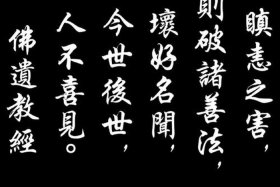 瞋恚之害，
則破諸善法，
壞好名聞，
今世後世，
人不喜見。
佛遺教經